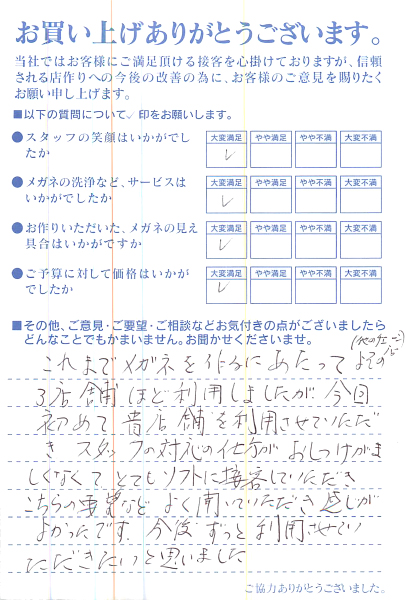 お買い上げありがとうございます。
当社ではお客様にご満足頂ける接客を心掛けておりますが、信頼
される店作りへの今後の改善の為に、お客様のご意見を賜りたく
お願い申し上げます。
■以下の質問について✓印をお願いします。
●スタッフの笑顔はいかがでし
たか
大変満足 やや満足 やや不満 大変不満
✓
●メガネの洗浄など、サービスは
いかがでしたか
大変満足 やや満足 やや不満 大変不満
✓
●お作りいただいた、メガネの見え
具合はいかがですか
大変満足 やや満足 やや不満 大変不満
✓
●ご予算に対して価格はいかが
でしたか
大変満足 やや満足 やや不満 大変不満
✓
■その他、ご意見・ご要望・ご相談などお気付きの点がございましたら
どんなことでもかまいません。お聞かせくださいませ。
これまでメガネを作るにあたって よその
3店舗ほど利用しましたが 今回
初めて 貴店舗を利用させていただ
き スタッフの対応の仕方が おしつけがま
しくなくて とてもソフトに接客していただき
こちらの要望など よく聞いていただき 感じが
よかったです。今後 ずっと利用させてい
ただきたいと思いました
ご協力ありがとうございました。